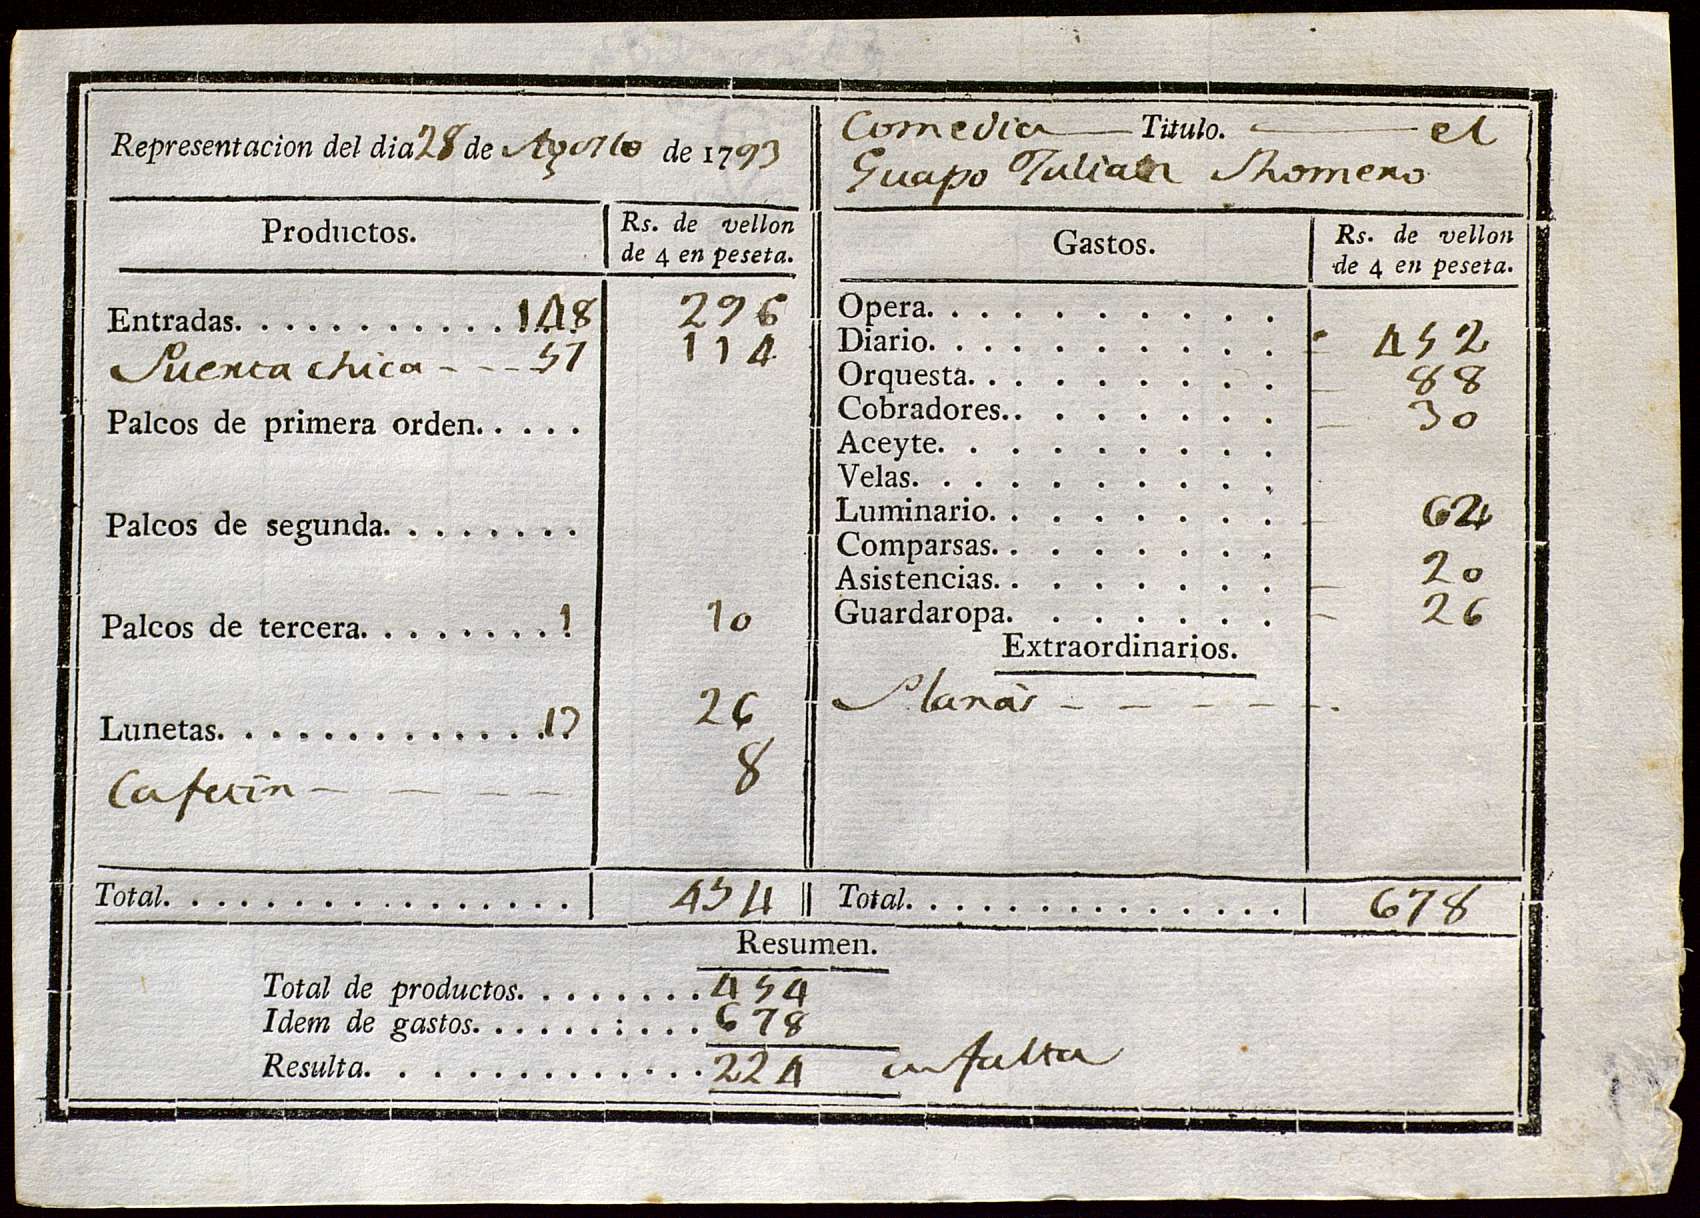 Representacion del dia 28 de Agosto de 1793
Productos.
Rs. de vellon
de 4 en peseta.
Entradas. . . . . . . . . . . . 148 296
Puerta chica - - - 57 114
Palcos de primera orden. . . . .
Palcos de segunda. . . . . . . .
Palcos de tercera. . . . . . . . 1 10
Lunetas. . . . . . . . . . . . . . 13 26
Cafetin - - - - - 8
Total. . . . . . . . . . . . . . . . 454
Comedia — Titulo. — el
Guapo Julian Rhomero
Gastos.
Rs. de vellon
de 4 en peseta.
Opera. . . . . . . . . .
Diario. . . . . . . . . . 452
Orquesta. . . . . . . . . 88
Cobradores. . . . . . . . 30
Aceyte. . . . . . . . .
Velas. . . . . . . . . .
Luminario. . . . . . . . 62
Comparsas. . . . . . . .
Asistencias. . . . . . . . 20
Guardaropa. . . . . . . 26
Extraordinarios.
Planas - - - - - - .
Total. . . . . . . . . . . . . . . 678
Resumen.
Total de productos. . . . . . . . 454
Idem de gastos. . . . . . : . . . 678
Resulta. . . . . . . . . . . . . 224 en falta